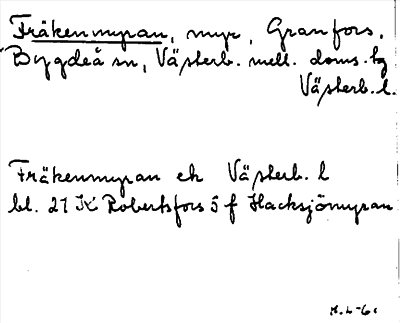 Fräkenmyran, myr, Granfors,
Bygdeå sn, Västerb. mell. doms. hg
Västerb. l.
Fräkenmyran ek Västerb. l
bl. 21 K Robertsfors 5 f Hacksjömyran